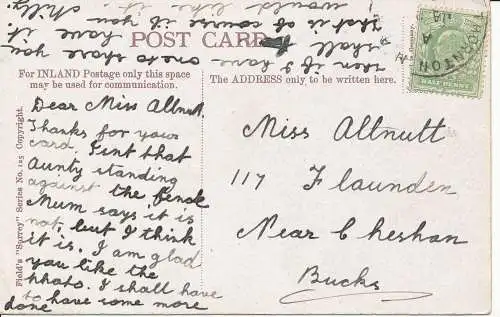 POST CARD
For INLAND Postage only this space
may be used for communication.
The ADDRESS only to be written here.
Dear Miss Allnutt.
Thanks for your
card. Isnt that
Aunty standing
against the fence
Mum says it is
not, but I think
it is. I am glad
you like the
photo. I shall have
to have some more
done
then if I have
one to share you
shall have it
that is of course if you
would like it still.
Miss Allnutt
117 Flaunden
Near Chesham
Bucks
Field's "Surrey" Series No. 125 Copyright.
HALF PENNY
THORNTON